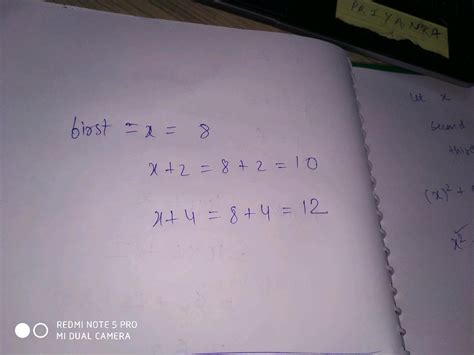 PRIYANKA
first = x = 8
x+2 = 8+2 = 10
x+4 = 8+4 = 12
Let x
Second
(x)² +
x²
REDMI NOTE 5 PRO
MI DUAL CAMERA